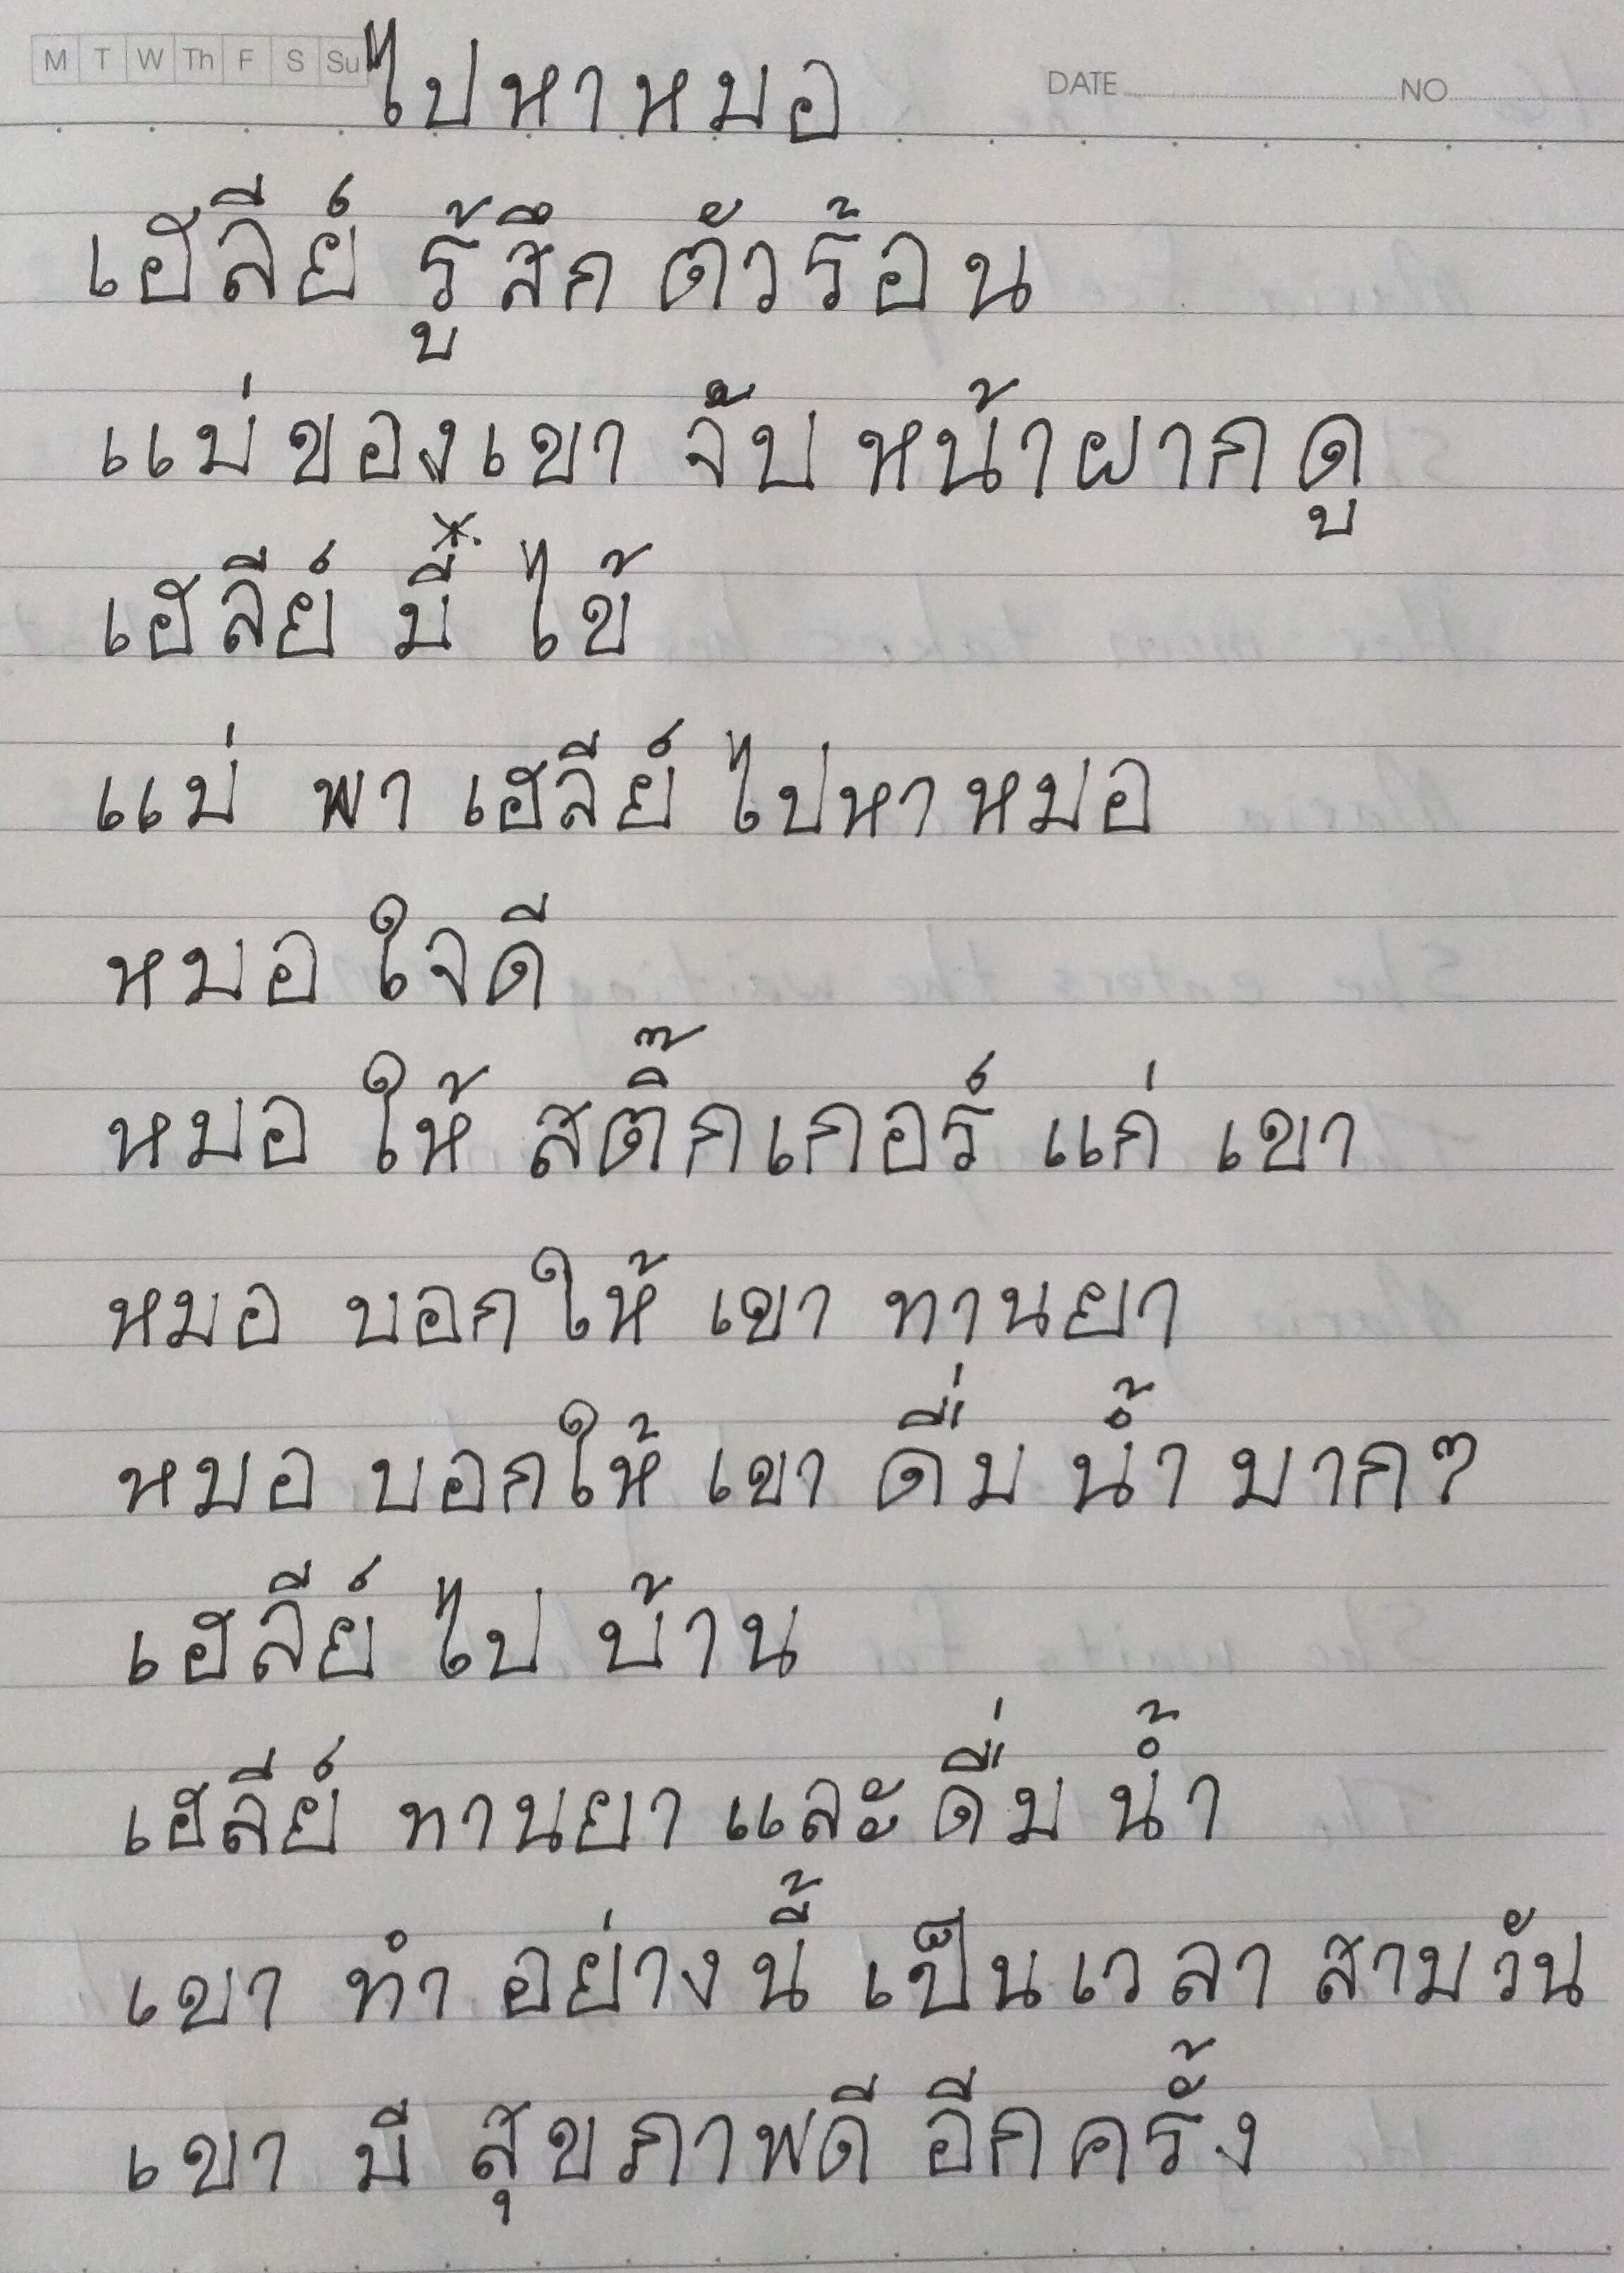 M T W Th F S Su ไปหาหมอ DATE NO
เฮลีย์ รู้สึก ตัวร้อน
แม่ของเขา จับ หน้าผากดู
เฮลีย์ มี ไข้
แม่ พา เฮลีย์ ไปหาหมอ
หมอ ใจดี
หมอ ให้ สติ๊กเกอร์ แก่ เขา
หมอ บอกให้ เขา ทานยา
หมอ บอกให้ เขา ดื่ม น้ำ มากๆ
เฮลีย์ ไป บ้าน
เฮลีย์ ทานยา และดื่ม น้ำ
เขา ทำ อย่างนี้ เป็นเวลา สามวัน
เขา มี สุขภาพดี อีกครั้ง